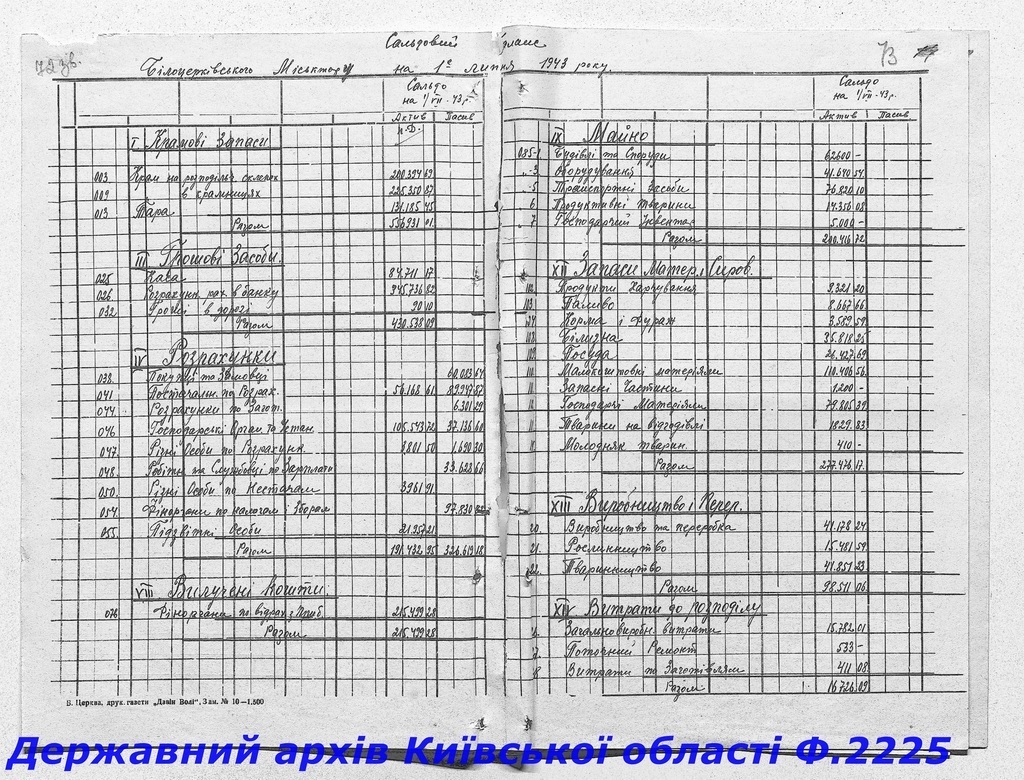 72 зв.
73
Сальдовий баланс
Білоцерківського Міськторгу на 1е липня 1943 року.
Сальдо на 1/VII-43 р.
Актив Пасив
І Крамові Запаси
003 Крам на розподільч. складах 200.394 69
009 " в крамницях 225.350 87
013 Тара 131.185 45
Разом 556931 01
III Грошові Засоби.
025 Каса 84.711 17
026 Розрахунк. рах. в банку 345.736 82
032 Гроші в дорозі 90 10
Разом 430.538 09
IV Розрахунки
038 Покупці та Замовці 60.083 64
041 Постачальн. по Розрах. 56.168 61 89.947 57
044 Розрахунки по Загот. 6.301 29
046 Господарські Орган. та Устан. 105.543 72 37.136 60
047 Різні Особи по Розрахунк. 8.801 50 1.690 30
048 Робітн. та Службовці по Зарплаті 33.628 66
050 Різні Особи по Нестачам 3961 91
054 Фіноргани по налогам і зборам 97.830
055 Підзвітні Особи 21.957 21
Разом 191.432 95 326.619 18
VIII Вилучені кошти:
076 Фіноргани по відрах. з Приб. 215.499 28
Разом 215.499 28
Сальдо на 1/VII-43 р.
Актив Пасив
IX Майно
085-1 Будівлі та Споруди 62600 –
3 Оборудування 41.640 54
5 Транспортні засоби 76.820 10
6 Продуктивні тварини 14.356 08
7 Господарчий Інвентар 5.000 –
Разом 200.416 72
XII Запаси Матер. і Сиров.
102 Продукти Харчування 9.321 20
103 Паливо 8.667 66
Корма і Фураж 3.589 59
Білизна 35.818 25
109 Посуда 26.427 69
Малокоштовні матеріали 110.406 56
Запасні Частини 1200 –
Господарчі Матеріяли 79.805 39
Тварини на відгодівлі 1829 83
Молодняк тварин 410 –
Разом 277.476 17
XIII Виробництво і Перер.
20. Виробництво та переробка 41.178 24
21. Рослинництво 15.481 59
22. Тваринництво 41.851 23
Разом 98.511 06
XIV Витрати до розподілу
Загальновиробн. витрати 15.782 01
7. Поточний Ремонт 533 –
8 Витрати по Заготівлям 411 08
Разом 16726 09
Б. Церква, друк. газети „Дзвін Волі", Зам. № 10—1.500
Державний архів Київської області Ф.2225